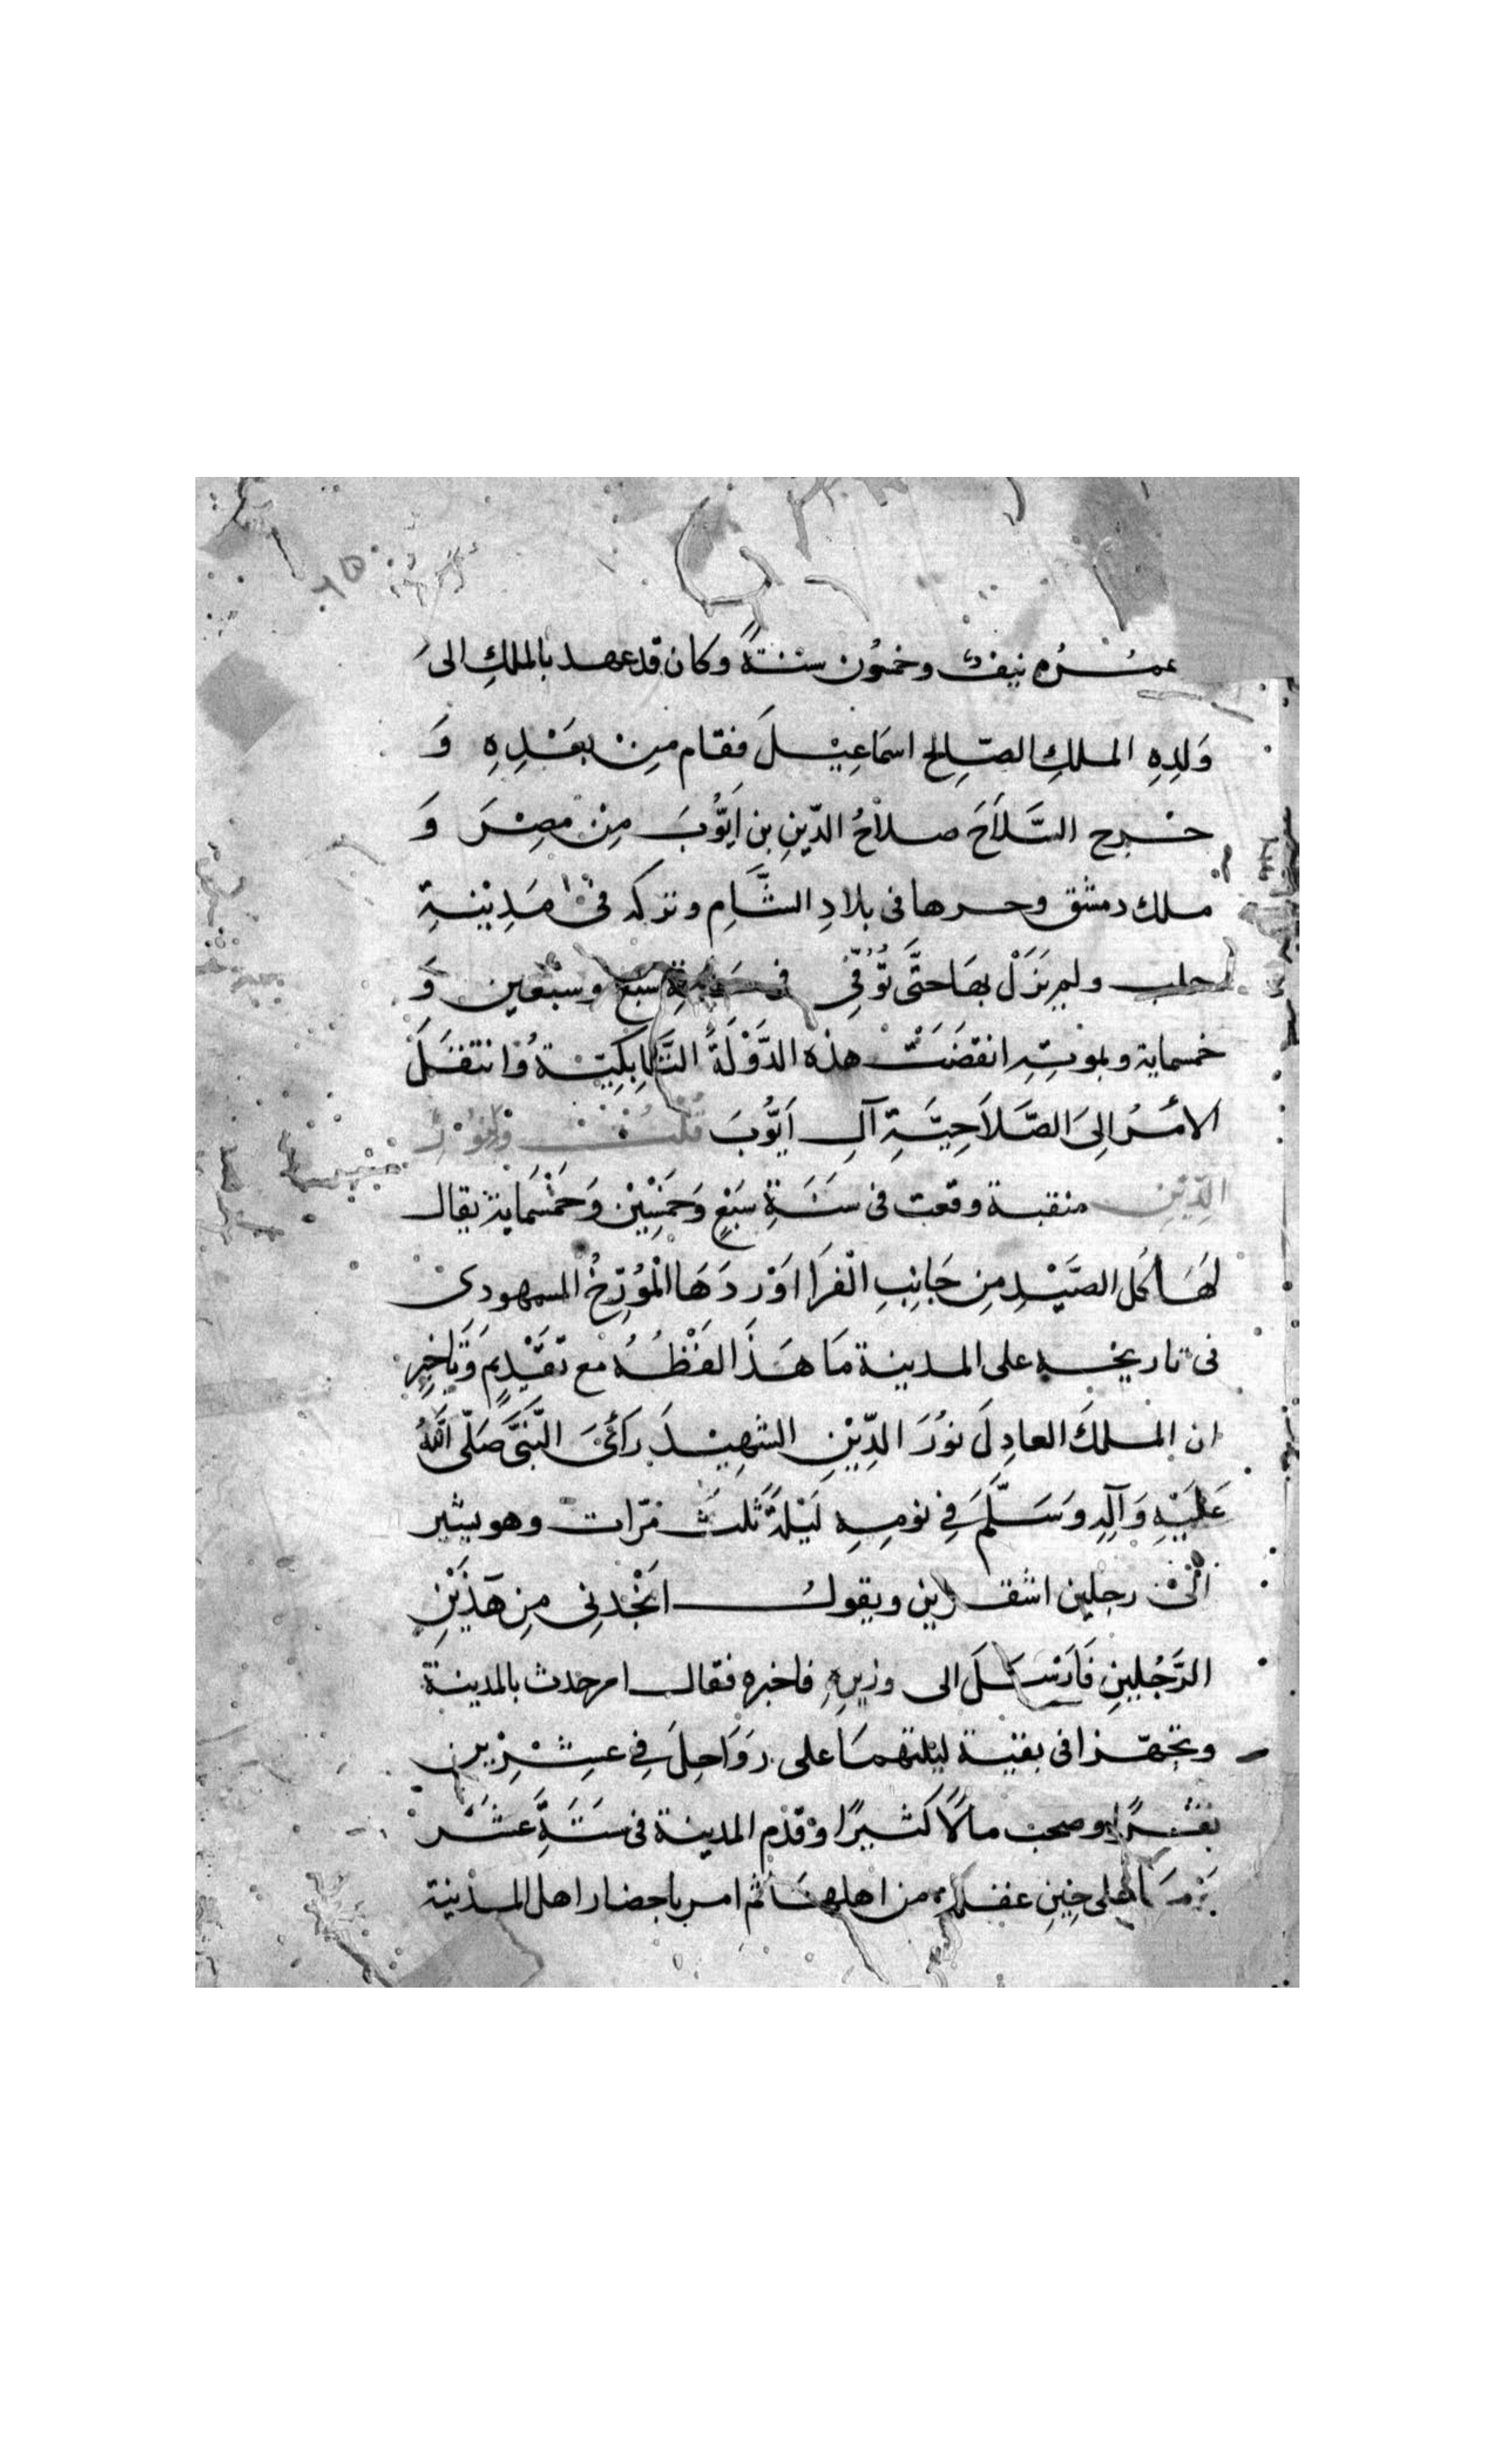 عمُــرُه نيفٌ وخمسُون سنــةً وكان قد عهــد بالملكِ الى
وَلدِهِ الملكِ الصّالِح اسمَاعِيْــلَ فقام مِنْ بعَــْدِهِ وَ
خــرج السَّلاَحَ صلاحُ الدّينِ بن اَيُّوبَ مِنْ مصِــرَ وَ
ملك دمشق وحــرها فى بلادِ الشَّامِ وتركه فى مَدِيْنــةِ
حلب ولم يَزَلْ بهَا حتَّى تُوُفِّى فى سَنَةِ سَبع وسَبْعين وَ
خمسماية وبموتِهِ انقضَتْ هذه الدَّوْلَةُ التَّابِكِيّــةُ وَانتقــَلَ
الامــرُ اِلىَ الصَّلاَحِيَّــةِ آل اَيُّوبَ قُلْتُ وَلِنُوْرِ
الدِّيْنِ منقبــة وقعت فى سَنــَةِ سَبْعٍ وَخَمْسِيْن وَخَمْسَمَاية يقال
لهَــا كل الصَّيْــدِ مِن جَانِبِ الْفَرَا اَوْرَدَهَا الْمُوَرّخُ السمهودى
فى تاريخــه على المدينــة مَا هَــذَا لفظُــهُ مع تقَدِيْمٍ وَتَاخِيْرٍ
ان الملكَ العادِلَ نوُرَ الدِّيْنِ الشهِيْــدَ رَائَ النَّبىَّ صَلّى اللّهُ
عَلَيْهِ وَآلِهِ وَسَلَّمَ فِى نومِــهِ لَيْلةً ثلثَ مَرّات وهو يشير
الىْ رجلين اشقــرين ويقولُ انْجُدنى مِن هَذَيْنِ
الرَّجُلينِ فَاَرْسَــلَ الى وزيرِهِ فاخبره فقال امر حدث بالمدينــة
وتجهّــزا فى بقيــة ليلتهمَا على رَوَاحِلَ فِى عشــرِيْن
نفــرًا وصحب مالاً كثــيرًا وقدم المدينــة فى ستَــةَ عشَــرْ
يَومًــا على حِيْنِ غفلة من اهلهــا ثم امر باحضار اهل المــدينة